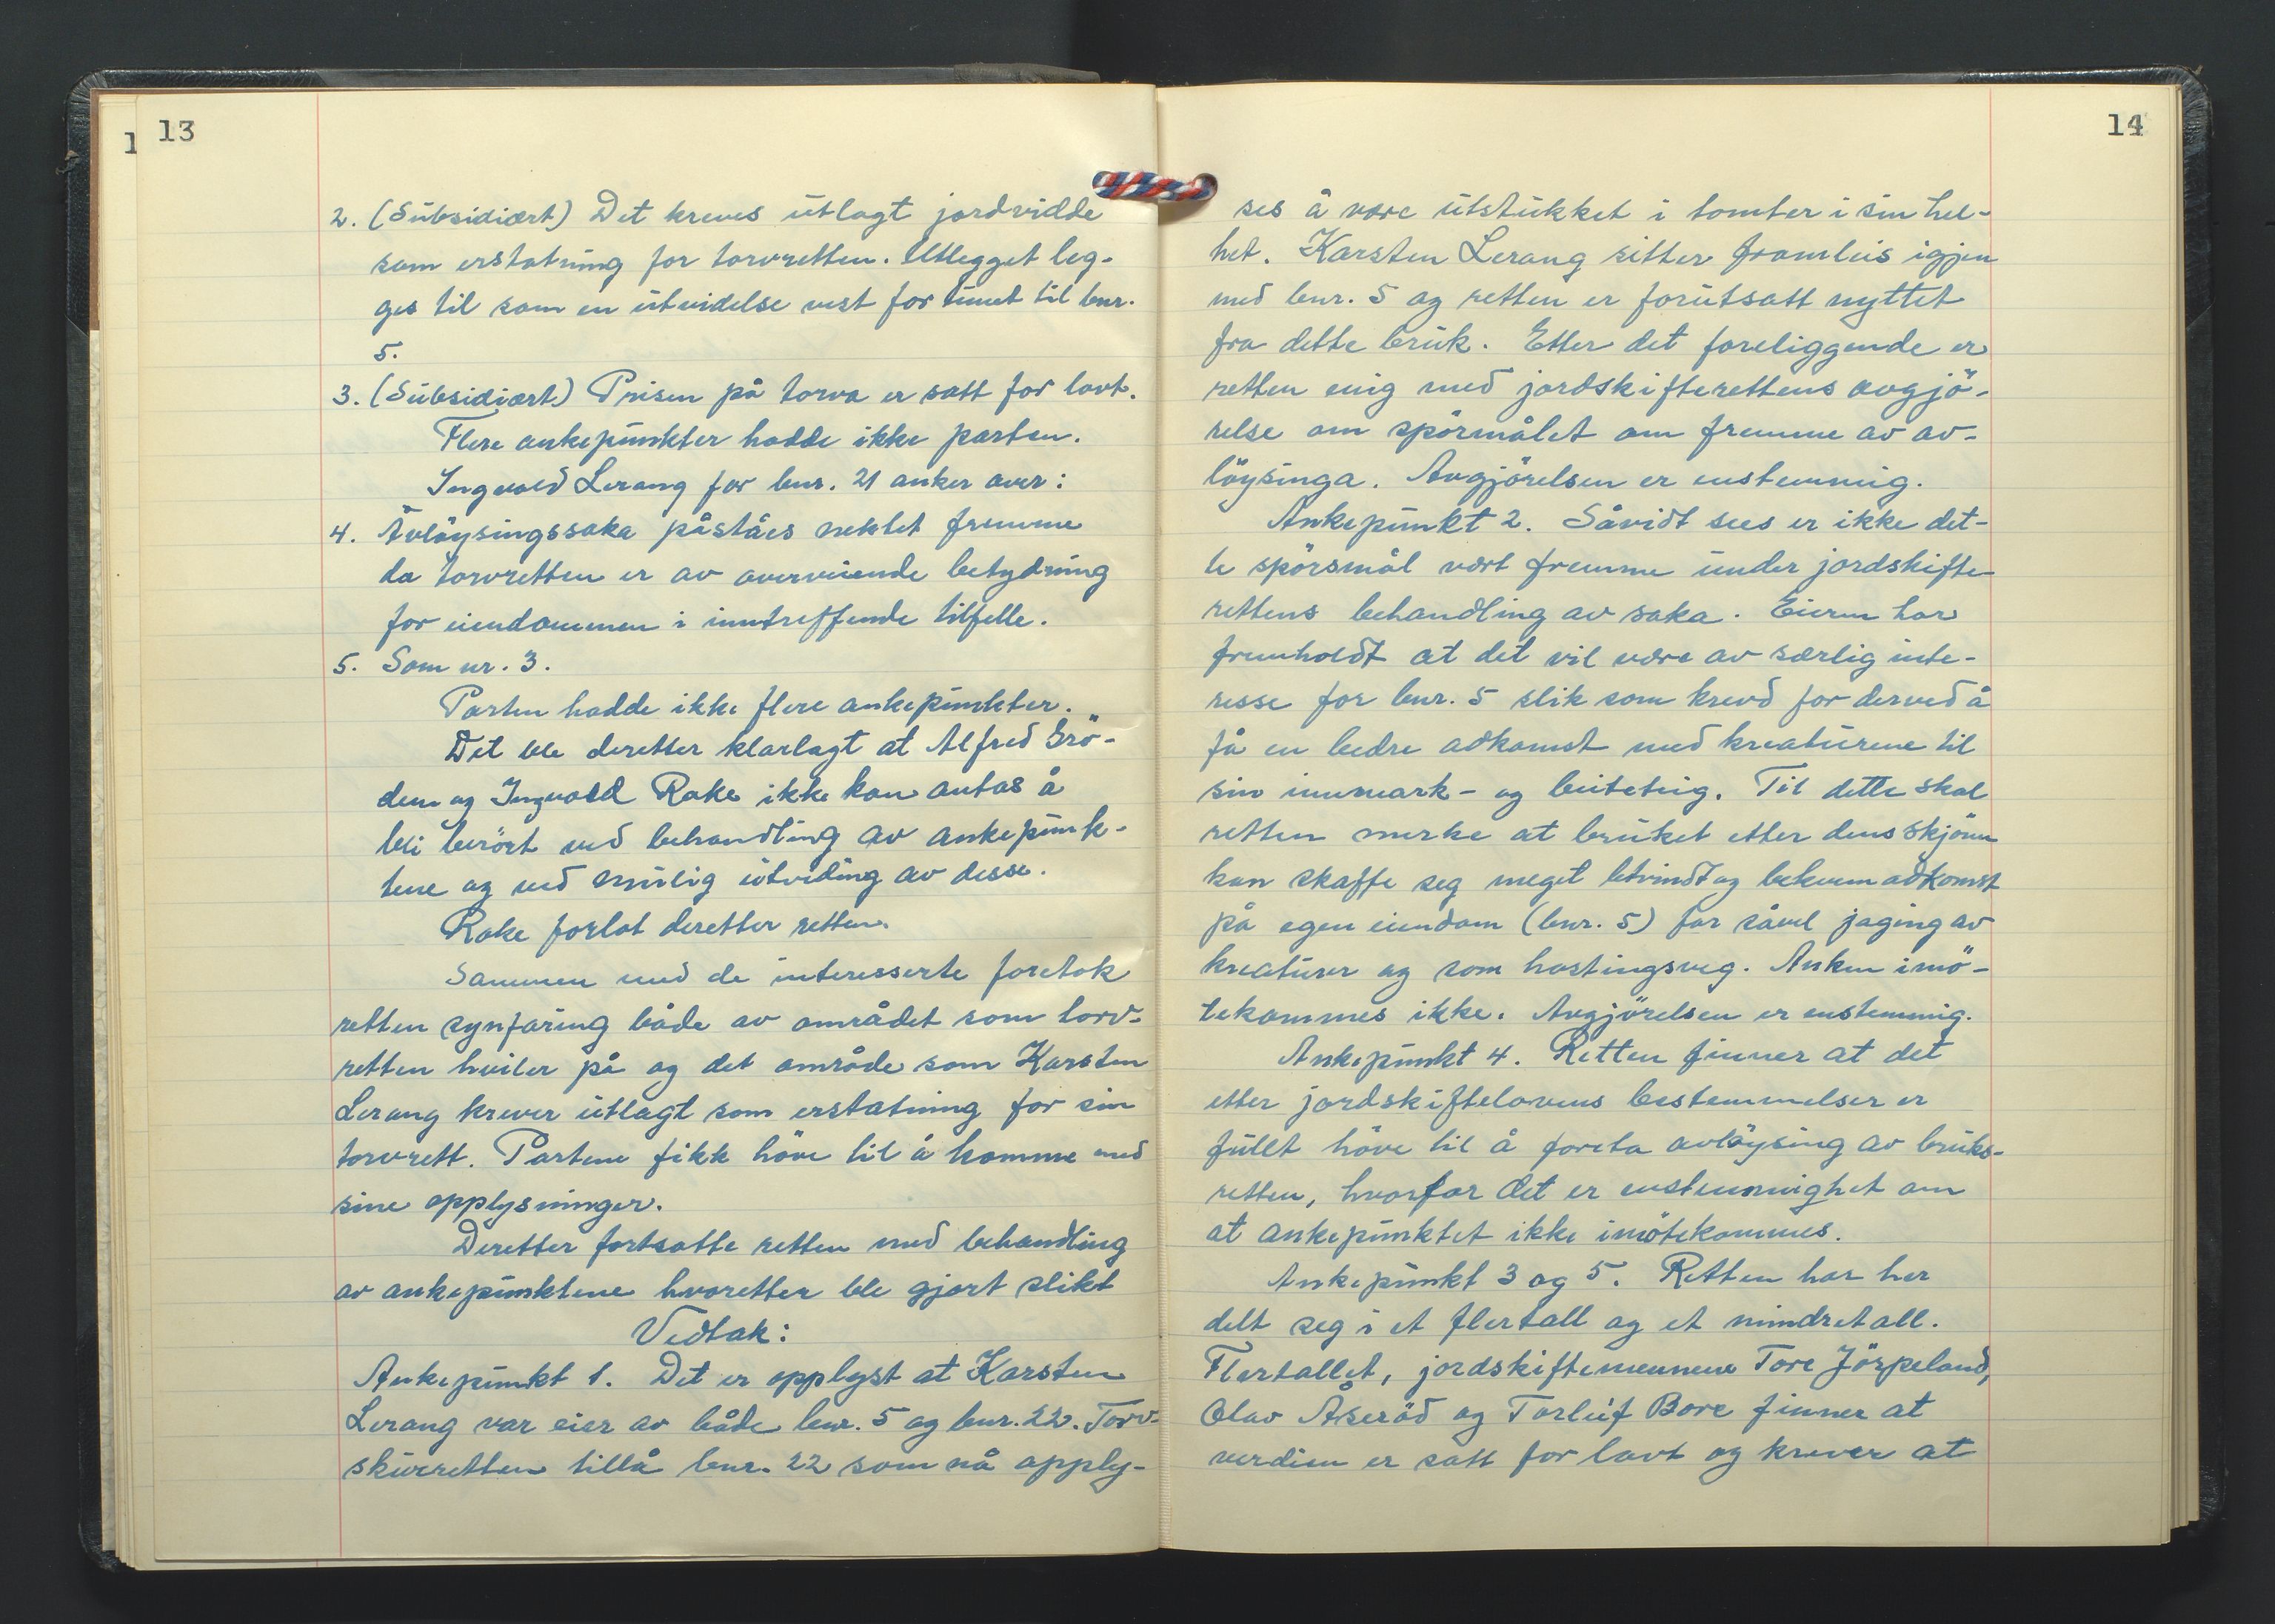 13
2. (Subsidiært) Det kreves utlagt jordvidde
som erstatning for torvretten. Utlegget leg-
ges til som en utvidelse vest for tunet til bnr.
5.
3. (Subsidiært) Prisen på torva er satt for lavt.
Flere ankepunkter hadde ikke parten.
Ingvald Lerang for bnr. 21 anker over:
4. Avløysingssaka påståes nektet fremme
da torvretten er av overveiende betydning
for eiendommen i inntreffende tilfelle.
5. Som nr. 3.
Parten hadde ikke flere ankepunkter.
Det ble deretter klarlagt at Alfred Grö-
dem og Ingvald Rake ikke kan antas å
bli berört ved behandling av ankepunk-
tene og ved mulig utviding av disse.
Rake forlot deretter retten.
Sammen med de interesserte foretok
retten synfaring både av området som torv-
retten hviler på og det område som Karsten
Lerang krever utlagt som erstatning for sin
torvrett. Partene fikk höve til å komme med
sine opplysninger.
Deretter fortsatte retten med behandling
av ankepunktene hvoretter ble gjort slikt
Vedtak:
Ankepunkt 1. Det er opplyst at Karsten
Lerang var eier av både bnr. 5 og bnr. 22. Torv-
skurretten tillå bnr. 22 som nå opply-
14
ses å være utstukket i tomter i sin hel-
het. Karsten Lerang sitter framleis igjen
med bnr. 5 og retten er forutsatt nyttet
fra dette bruk. Etter det foreliggende er
retten enig med jordskifterettens avgjö-
relse om spörmålet om fremme av av-
löysinga. Avgjörelsen er enstemmig.
Ankepunkt 2. Såvidt sees er ikke det-
te spörsmål vært fremme under jordskifte-
rettens behandling av saka. Eieren har
fremholdt at det vil være av særlig inte-
resse for bnr. 5 slik som krevd for derved å
få en bedre adkomst med kreaturene til
sin innmark- og beiteteig. Til dette skal
retten merke at bruket etter dens skjönn
kan skaffe seg meget letvindt og bekvem adkomst
på egen eiendom (bnr. 5) for såvel jaging av
kreaturer og som hostingsveg. Anken imö-
tekommes ikke. Avgjörelsen er enstemmig.
Ankepunkt 4. Retten finner at det
etter jordskiftelovens bestemmelser er
fullt höve til å foreta avlöysing av bruks-
retten, hvorfor det er enstemmighet om
at ankepunktet ikke imötekommes.
Ankepunkt 3 og 5. Retten har her
delt seg i et flertall og et mindretall.
Flertallet, jordskiftemennene Tore Jörpeland,
Olav Åseröd og Torleif Bore finner at
verdien er satt for lavt og krever at